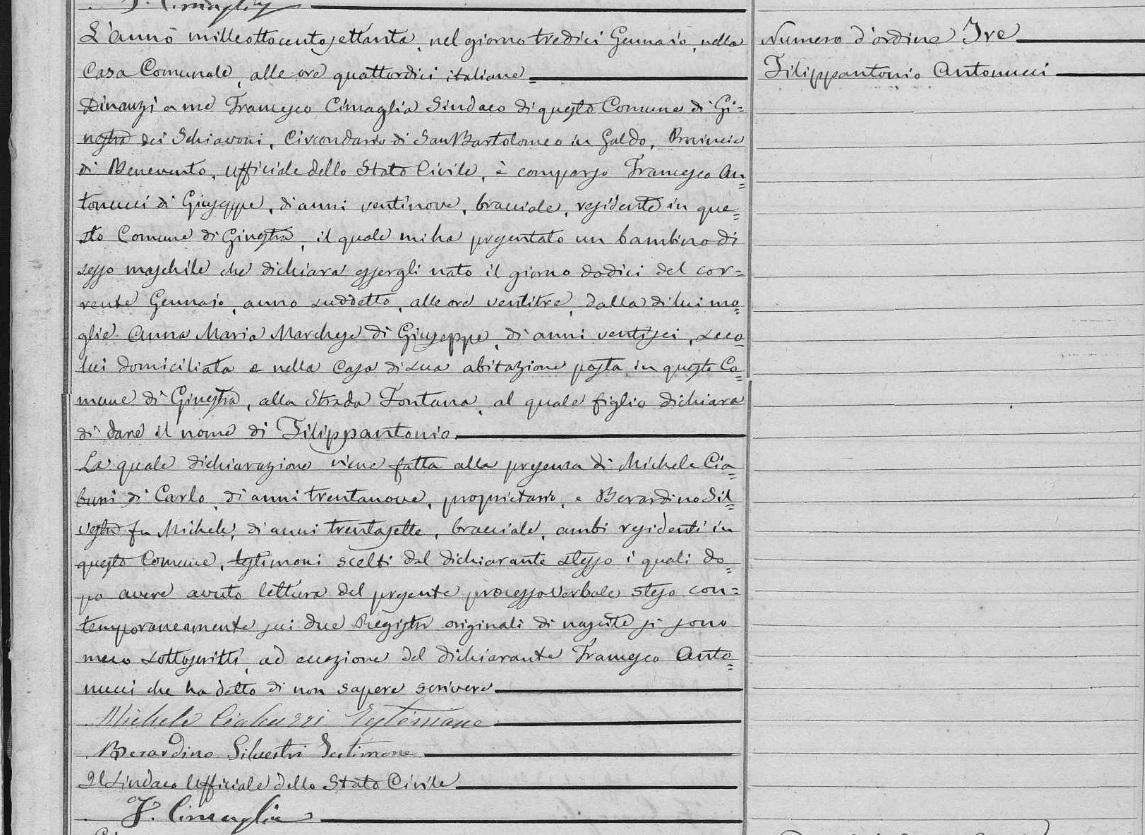 F. Cimaglia
L'anno milleottocentosettanta, nel giorno tredici Gennaio, nella
Casa Comunale, alle ore quattordici italiane
Dinanzi a me Francesco Cimaglia Sindaco di questo Comune di Gi=
nestra dei Schiavoni, Circondario di San Bartolomeo in Galdo, Provincia
di Benevento, ufficiale dello Stato Civile, è comparso Francesco An=
tonucci di Giuseppe, di anni ventinove, bracciale, residente in que=
sto Comune di Ginestra, il quale mi ha presentato un bambino di
sesso maschile che dichiara essergli nato il giorno dodici del cor=
rente Gennaio, anno suddetto, alle ore ventitre, dalla di lui mo=
glie Anna Maria Marchese di Giuseppe, di anni ventisei, seco
lui domiciliata e nella Casa di sua abitazione posta in questo Co=
mune di Ginestra, alla Strada Fontana, al quale figlio dichiara
di dare il nome di Filippantonio
La quale dichiarazione viene fatta alla presenza di Michele Cia=
di Carlo, di anni trentanove, proprietario, e Berardino Sil=
fu Michele, di anni trentasette, bracciale, ambi residenti in
questo Comune, testimoni scelti dal dichiarante stesso i quali do=
po avere avuto lettura del presente processo verbale steso con=
temporaneamente sui due Registri originali di nascite si sono
meco sottoscritti, ad eccezione del dichiarante Francesco Anto=
nucci che ha detto di non sapere scrivere
Michele Testimone
Berardino Silvestri Testimone
Il Sindaco Ufficiale dello Stato Civile
F. Cimaglia
Numero d'ordine Tre
Filippantonio Antonucci